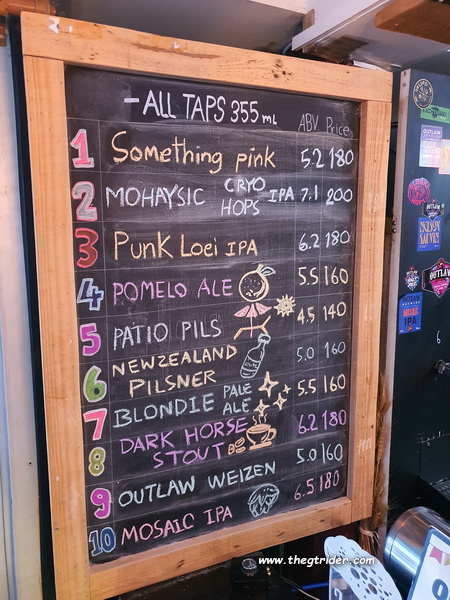 -ALL TAPS 355 mL
ABV Price
1 Something pink 5.2 180
2 MOHAYSIC CRYO HOPS IPA 7.1 200
3 Punk Loei IPA 6.2 180
4 POMELO ALE 5.5 160
5 PATIO PILS 4.5 140
6 NEWZEALAND PILSNER 5.0 160
7 BLONDIE PALE ALE 5.5 160
8 DARK HORSE STOUT 6.2 180
9 OUTLAW WEIZEN 5.0 160
10 MOSAIC IPA 6.5 180
OUTLAW
NELSON
SAUVIN
OUTLAW
IPA
www.thegtrider.com